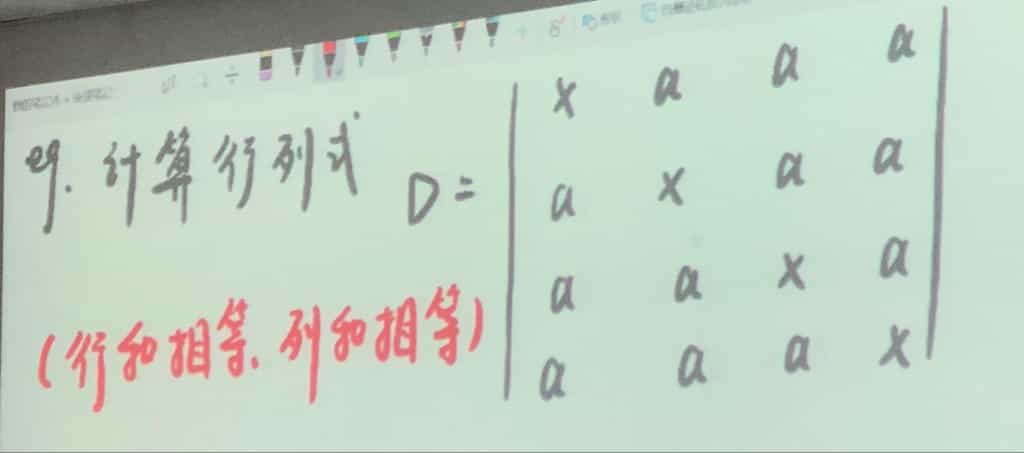 eg. 计算行列式 D =
x a a a
a x a a
a a x a
a a a x
(行和相等. 列和相等)